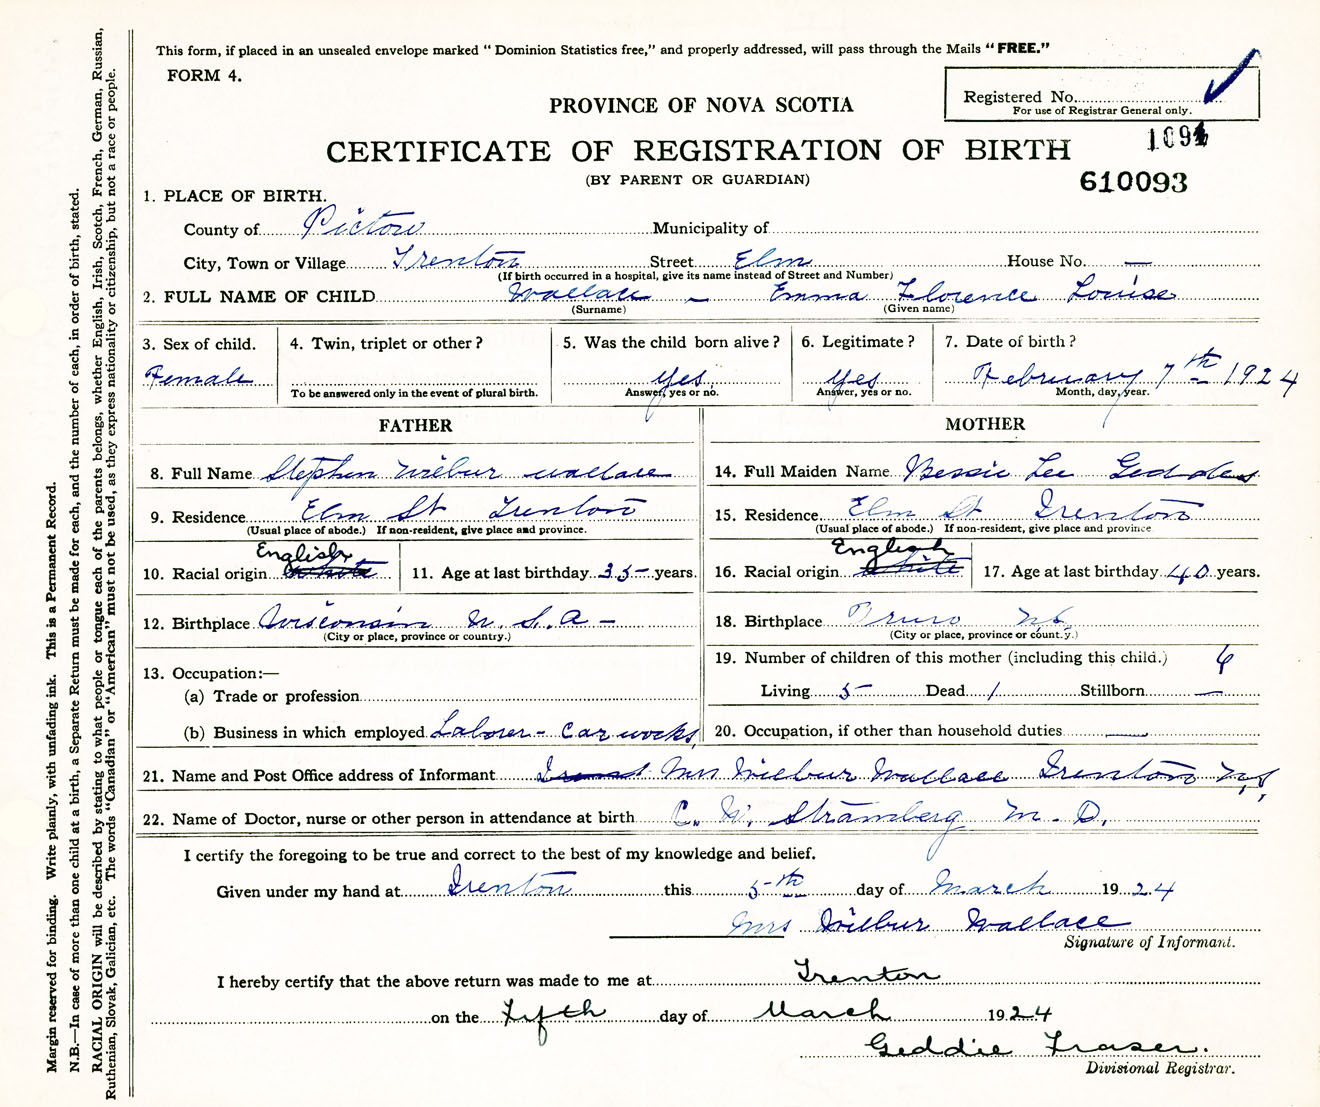 This form, if placed in an unsealed envelope marked "Dominion Statistics free," and properly addressed, will pass through the Mails "FREE."
FORM 4.
Registered No.
For use of Registrar General only.
PROVINCE OF NOVA SCOTIA
CERTIFICATE OF REGISTRATION OF BIRTH
(BY PARENT OR GUARDIAN)
610093
1. PLACE OF BIRTH.
County of Pictou Municipality of
City, Town or Village Trenton Street Elm House No. —
(If birth occurred in a hospital, give its name instead of Street and Number)
2. FULL NAME OF CHILD Wallace - Emma Florence Louise
(Surname) (Given name)
3. Sex of child. 4. Twin, triplet or other? 5. Was the child born alive? 6. Legitimate? 7. Date of birth?
Female yes yes February 7th 1924
To be answered only in the event of plural birth. Answer, yes or no. Answer, yes or no. Month, day, year.
FATHER
8. Full Name Stephen Wilbur Wallace
9. Residence Elm St Trenton
(Usual place of abode.) If non-resident, give place and province.
English
10. Racial origin white 11. Age at last birthday 35 years.
12. Birthplace Wisconsin U.S.A -
(City or place, province or country.)
13. Occupation:—
(a) Trade or profession
(b) Business in which employed Laborer - Car works,
MOTHER
14. Full Maiden Name Bessie Lee Geddes
15. Residence Elm St Trenton
(Usual place of abode.) If non-resident, give place and province
English
16. Racial origin white 17. Age at last birthday 40 years.
18. Birthplace Truro N.S.
(City or place, province or country.)
19. Number of children of this mother (including this child.) 6
Living 5 Dead 1 Stillborn —
20. Occupation, if other than household duties —
21. Name and Post Office address of Informant Mrs Wilbur Wallace Trenton N.S.
22. Name of Doctor, nurse or other person in attendance at birth C. W. Stramberg M.D.
I certify the foregoing to be true and correct to the best of my knowledge and belief.
Given under my hand at Trenton this 5th day of March 1924
Mrs Wilbur Wallace
Signature of Informant.
I hereby certify that the above return was made to me at Trenton
on the Fifth day of March 1924
Geddie Fraser.
Divisional Registrar.
Margin reserved for binding. Write plainly, with unfading ink. This is a Permanent Record.
N.B.—In case of more than one child at a birth, a Separate Return must be made for each, and the number of each, in order of birth, stated.
RACIAL ORIGIN will be described by stating to what people or tongue each of the parents belongs, whether English, Irish, Scotch, French, German, Russian,
Ruthenian, Slovak, Galician, etc. The words "Canadian" or "American" must not be used, as they express nationality or citizenship, but not a race or people.